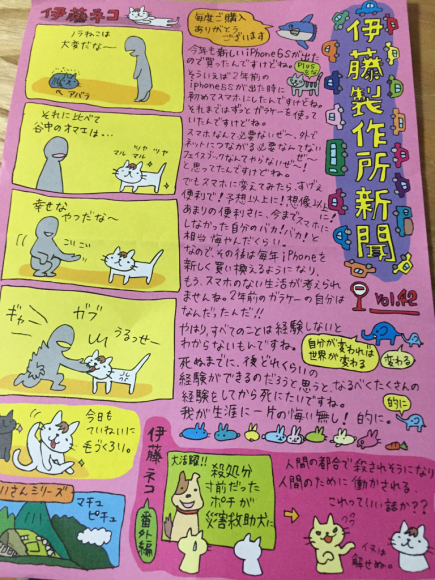 伊藤製作所新聞。
Vol.42
毎度ご購入
ありがとう
ございます
今年も新しいiPhone6Sが出た
ので買ったんですけどね。
Plus
そういえば2年前の
iphone5Sが出た時に
初めてスマホにしたんですけどね。
それまではずっとガラケーを使って
いたんですけどね。
スマホなんて必要ないぜ〜、外で
ネットにつながる必要なんてない
ぜ〜
フェイスブックなんてやらないぜ〜!
と思ってたんですけどね。
でもスマホに変えてみたら、すげえ
便利で!予想以上に!想像以上に!
あまりの便利さに、今までスマホに
しなかった自分のバカ!バカ!と
相当悔やんだくらい。
なので、その後は毎年iPhoneを
新しく買い換えるようになり、
もう、スマホのない生活が考えられ
ませんね。2年前のガラケーの自分は
なんだったんだ!!
やはり、すべてのことは経験しないと
わからないもんですね。
自分が変われば
世界が変わる
変わる
死ぬまでに、後どれくらいの
経験ができるのだろうと思うと、なるべくたくさんの
経験をしてから死にたいですね。
我が生涯に一片の悔い無し!的に。
的に
伊藤ネコ
ノラねこは
大変だな〜
アバラ
それに比べて
谷中のオマエは…
ツヤ ツヤ
マル マル
幸せな
やつだな〜
ギャー
ガブ
うるっせー
今日も
ていねいに
毛づくろい。
いさんシリーズ
マチュ
ピチュ
伊藤ネコ
番外編
大活躍!!
殺処分
寸前だった
ポチが
災害救助犬に
人間の都合で殺されそうになり
人間のために働かされる、
これっていい話か??
イヌは
解せぬ。